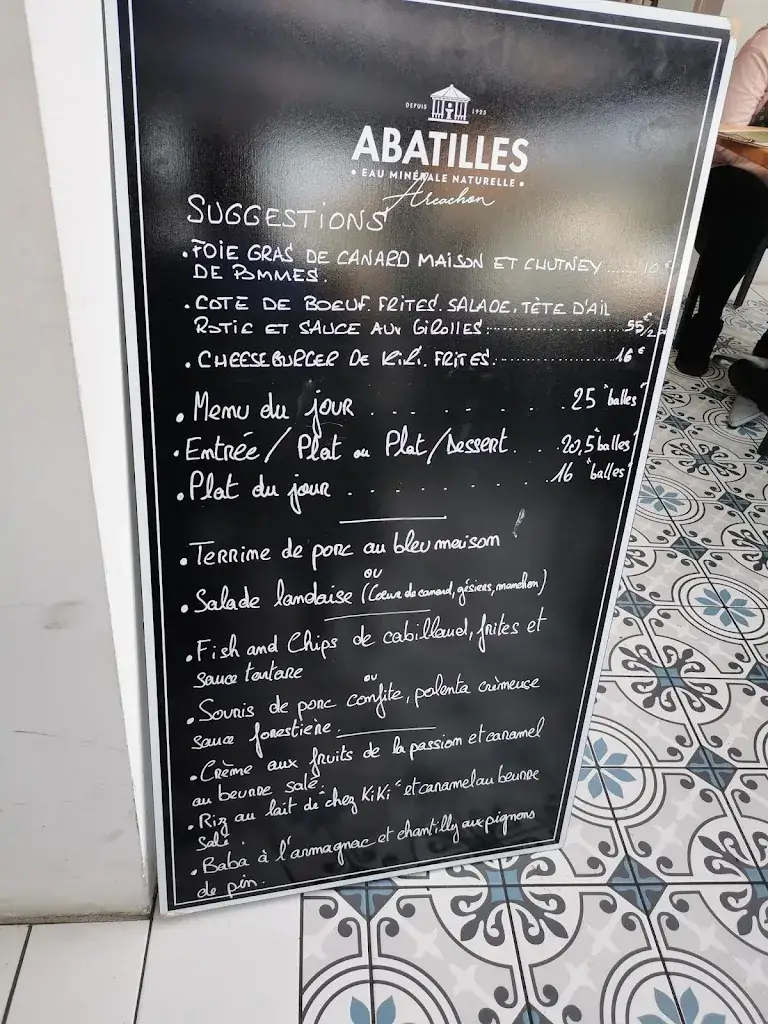 DEPUIS 1925
ABATILLES
• EAU MINÉRALE NATURELLE •
Arcachon
SUGGESTIONS
• FOIE GRAS DE CANARD MAISON ET CHUTNEY ...... 10 €
DE POMMES.
• COTE DE BOEUF. FRITES. SALADE. TÊTE D'AIL
ROTIC ET SAUCE AUX GIROLLES ............ 55€/2
• CHEESEBURGER DE KIKI. FRITES. ............ 16 €
• Menu du jour . . . . . . 25 "balles"
• Entrée / Plat ou Plat/Dessert . . . 20,5 "balles"
• Plat du jour . . . . . . 16 "balles"
• Terrime de porc au bleu maison
ou
• Salade landaise (Coeur de canard, gésiers, manchon)
• Fish and Chips de cabillaud, frites et
sauce tartare
ou
• Souris de porc confite, polenta crèmeuse
sauce forestière.
• Crème aux fruits de la passion et caramel
au beurre salé.
• Riz au lait de "chez KiKi" et caramel au beurre
salé.
• Baba à l'armagnac et chantilly aux pignons
de pin.